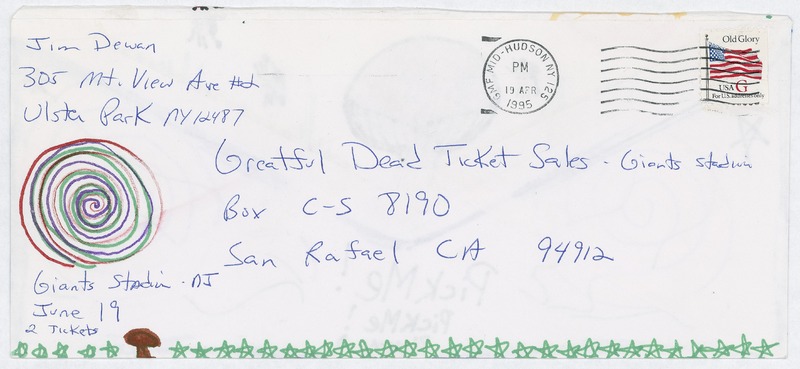 Jim Dewan
305 Mt. View Ave
Ulster Park NY 12487
GMF MID-HUDSON NY 125
PM
19 APR
1995
Old Glory
USA G
For U.S. addresses only
Greatful Dead Ticket Sales - Giants Stadium
Box C-S 8190
San Rafael CA 94912
Giants Stadium - NJ
June 19
2 Tickets
Pick Me!
Pick Me!